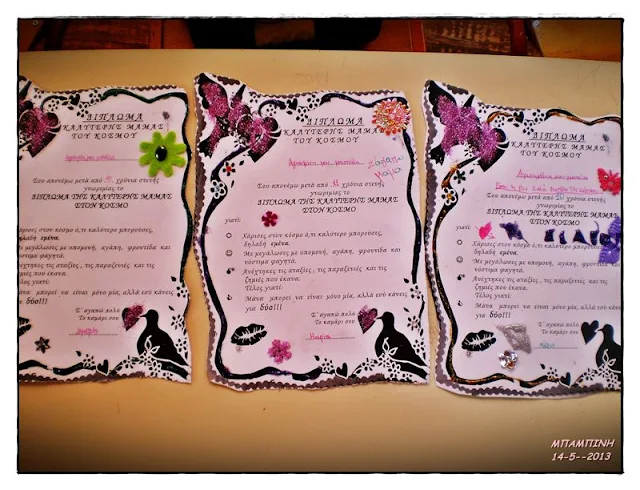 ΔΙΠΛΩΜΑ
ΚΑΛΥΤΕΡΗΣ ΜΑΜΑΣ
ΤΟΥ ΚΟΣΜΟΥ
Σου απονέμω μετά από
χρόνια στενής
γνωριμίας το
ΔΙΠΛΩΜΑ ΤΗΣ ΚΑΛΥΤΕΡΗΣ ΜΑΜΑΣ
ΣΤΟΝ ΚΟΣΜΟ
Χάρισες στον κόσμο ό,τι καλύτερο μπορούσες,
δηλαδή εμένα.
Με μεγάλωσες με υπομονή, αγάπη, φροντίδα και
νόστιμα φαγητά.
Ανέχτηκες τις αταξίες, τις παραξενιές και τις
ζημιές που έκανα.
Τέλος γιατί:
Μάνα μπορεί να είναι μόνο μία, αλλά εσύ κάνεις
για δύο!!!
Σ' αγαπώ πολύ
Το καμάρι σου
ΔΙΠΛΩΜΑ
ΚΑΛΥΤΕΡΗΣ ΜΑΜΑΣ
ΤΟΥ ΚΟΣΜΟΥ
Σου απονέμω μετά από
χρόνια στενής
γνωριμίας το
ΔΙΠΛΩΜΑ ΤΗΣ ΚΑΛΥΤΕΡΗΣ ΜΑΜΑΣ
ΣΤΟΝ ΚΟΣΜΟ
γιατί:
Χάρισες στον κόσμο ό,τι καλύτερο μπορούσες,
δηλαδή εμένα.
Με μεγάλωσες με υπομονή, αγάπη, φροντίδα και
νόστιμα φαγητά.
Ανέχτηκες τις αταξίες, τις παραξενιές και τις
ζημιές που έκανα.
Τέλος γιατί:
Μάνα μπορεί να είναι μόνο μία, αλλά εσύ κάνεις
για δύο!!!
Σ' αγαπώ πολύ
Το καμάρι σου
ΔΙΠΛΩΜΑ
ΚΑΛΥΤΕΡΗΣ ΜΑΜΑΣ
ΤΟΥ ΚΟΣΜΟΥ
Σου απονέμω μετά από
χρόνια στενής
γνωριμίας το
ΔΙΠΛΩΜΑ ΤΗΣ ΚΑΛΥΤΕΡΗΣ ΜΑΜΑΣ
ΣΤΟΝ ΚΟΣΜΟ
γιατί:
Χάρισες στον κόσμο ό,τι καλύτερο μπορούσες,
δηλαδή εμένα.
Με μεγάλωσες με υπομονή, αγάπη, φροντίδα και
νόστιμα φαγητά.
Ανέχτηκες τις αταξίες, τις παραξενιές και τις
ζημιές που έκανα.
Τέλος γιατί:
Μάνα μπορεί να είναι μόνο μία, αλλά εσύ κάνεις
για δύο!!!
Σ' αγαπώ πολύ
Το καμάρι σου
ΜΠΑΜΠΙΝΗ
14-5--2013